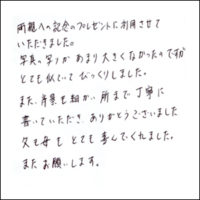 両親への記念のプレゼントに利用させて
いただきました。
写真の写りがあまり大きくなかったのですが
とても似ていてびっくりしました。
また、背景も細かい所まで丁寧に
書いていただきありがとうございました
父も母もとても喜んでくれました。
またお願いします。